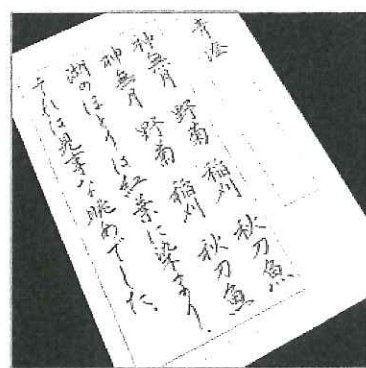 青澄
神無月 野菊 稲刈 秋刀魚
神無月 野菊 稲刈 秋刀魚
湖のほとりは紅葉に染まり、
それは見事な眺めでした。